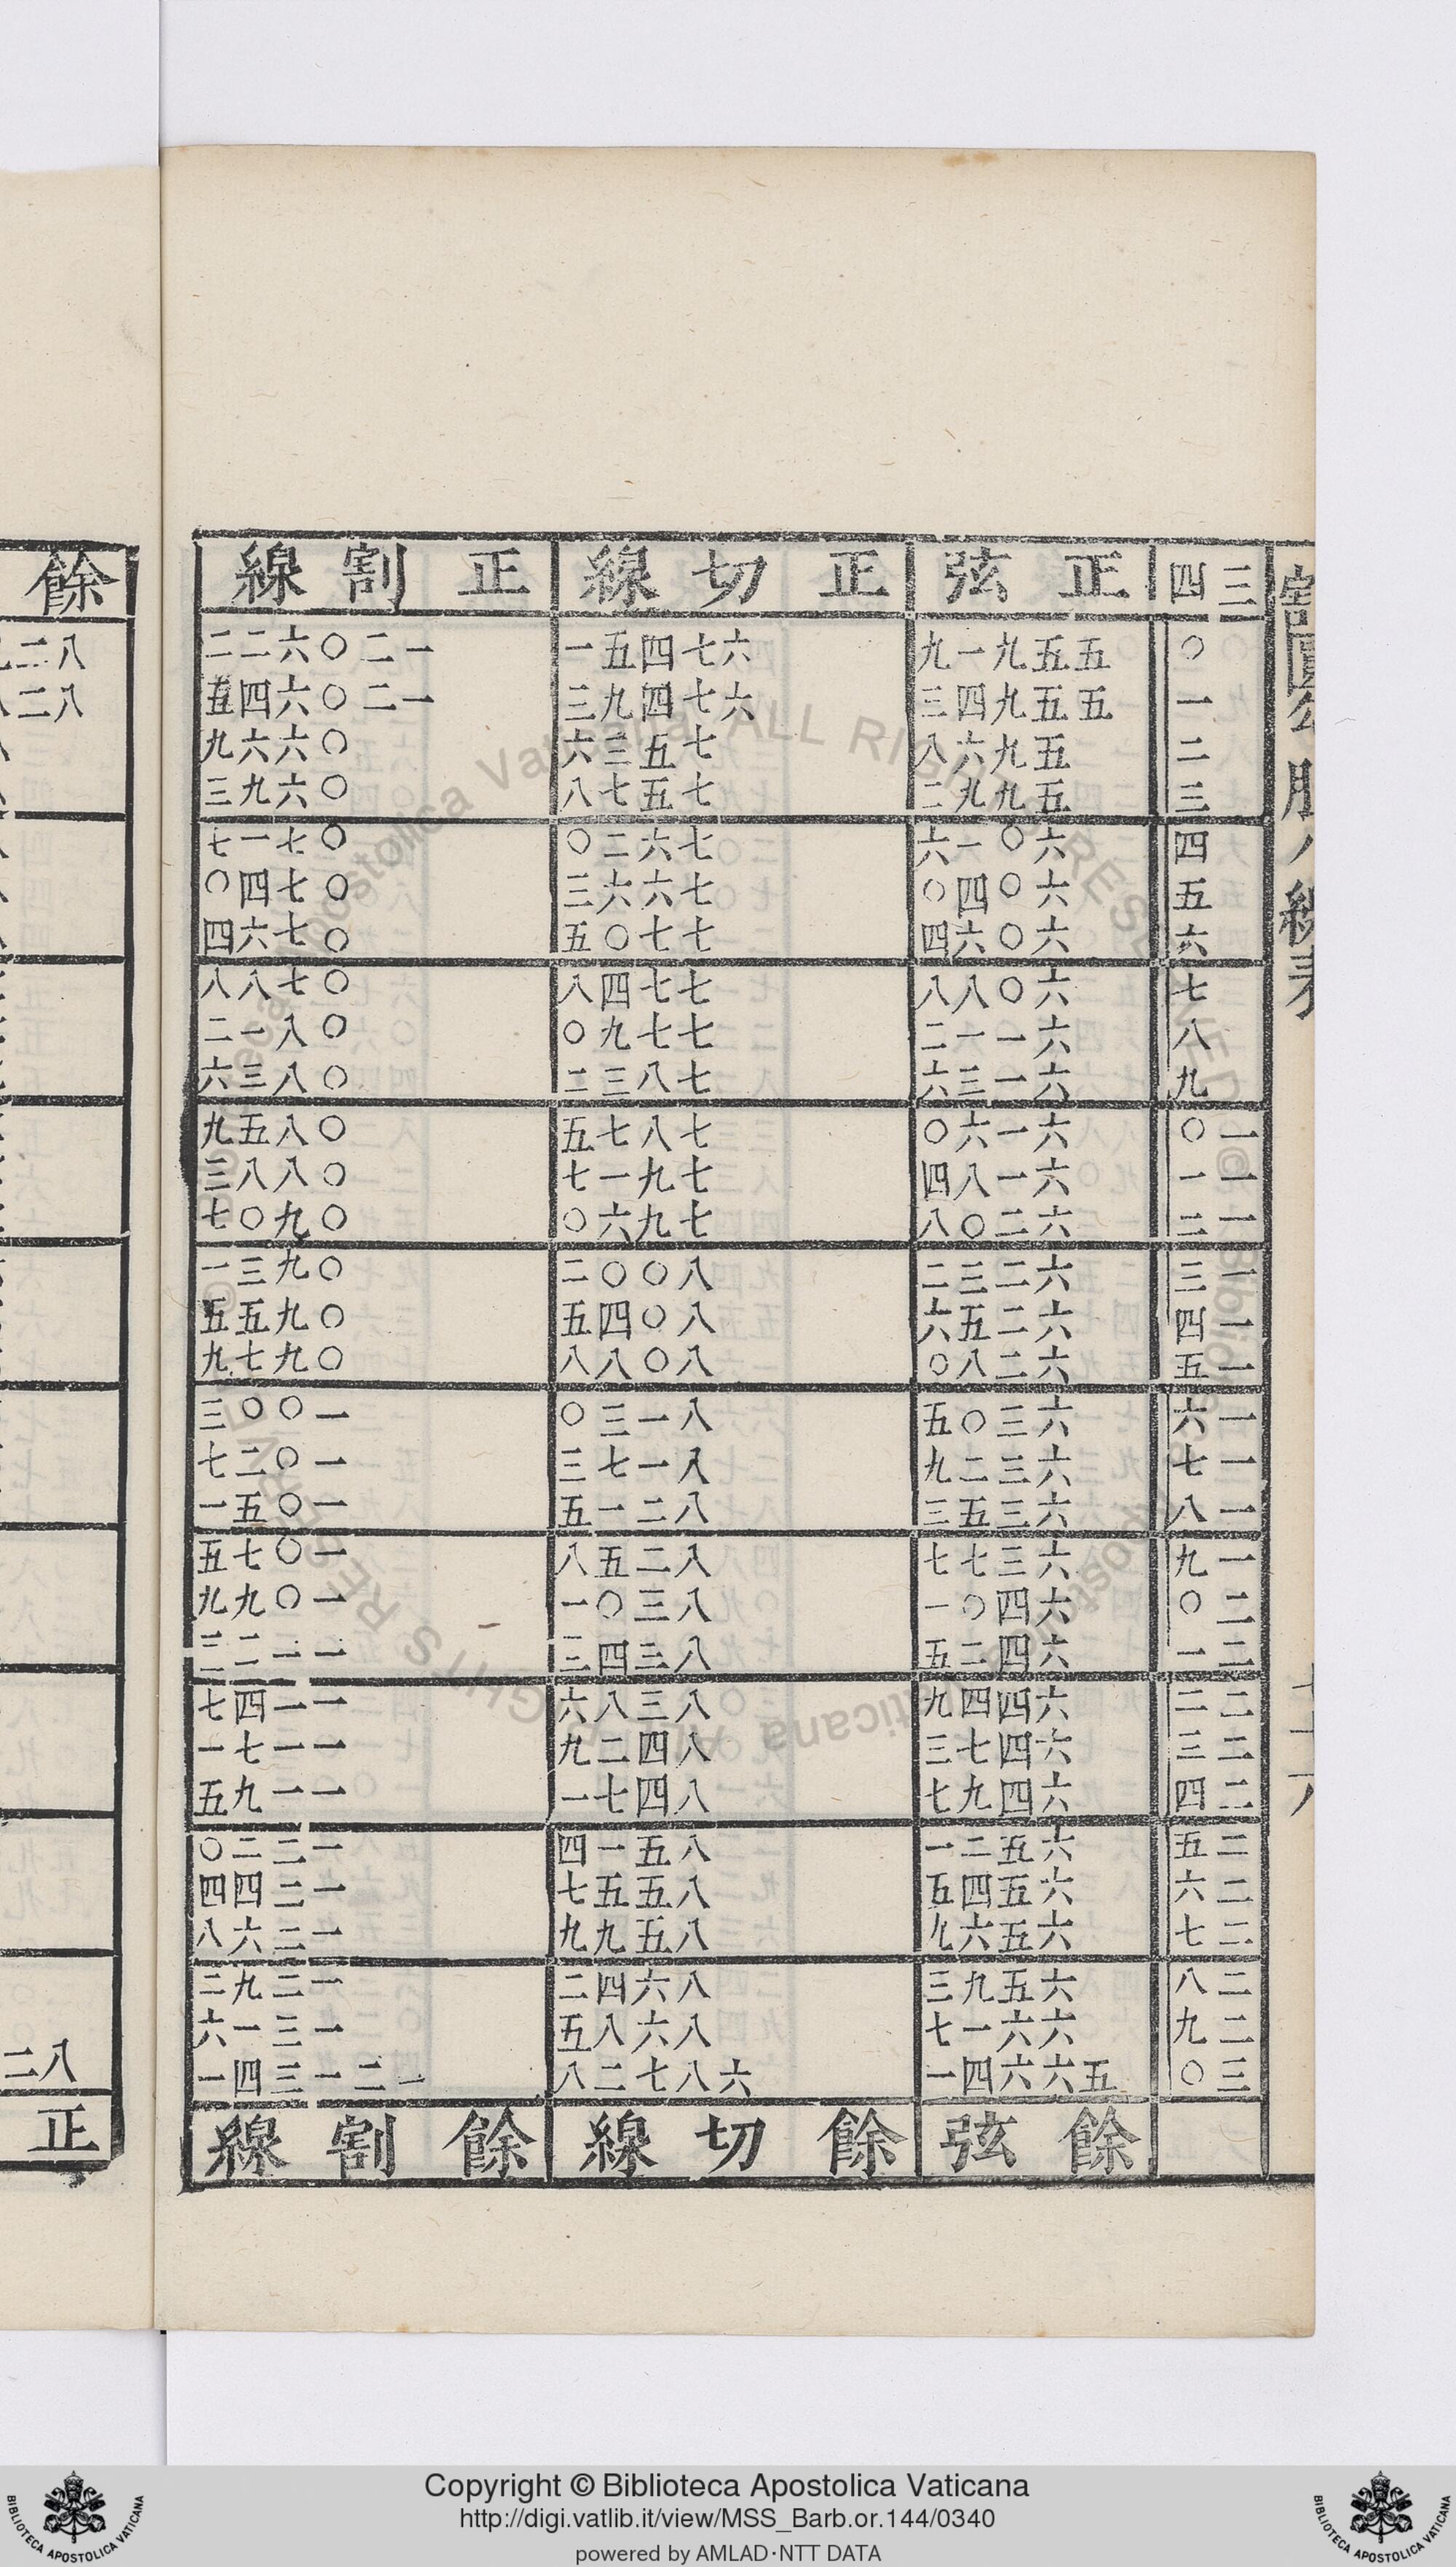 割圓勾股八線表
三四 正弦 正切線 正割線
○ 五五九一九 六七四五一 一二○六二二
一 五五九四三 六七四九三 一二○六四五
二 五九六八 七五三六 ○六六九
三 五九九二 七五七八 ○六九三
四 六○一六 七六二○ ○七一七
五 六○四○ 七六六三 ○七四○
六 六○六四 七七○五 ○七六四
七 六○八八 七七四八 ○七八八
八 六一一二 七七九○ ○八一二
九 六一三六 七八三二 ○八三六
一○ 六一六○ 七八七五 ○八五九
一一 六一八四 七九一七 ○八八三
一二 六二○八 七九六○ ○九○七
一三 六二三二 八○○二 ○九三一
一四 六二五六 八○四五 ○九五五
一五 六二八○ 八○八八 ○九七九
一六 六三○五 八一三○ 一○○三
一七 六三二九 八一七三 一○二七
一八 六三五三 八二一五 一○五一
一九 六三七七 八二五八 一○七五
二○ 六四○一 八三○一 一○九九
二一 六四二五 八三四三 一一二三
二二 六四四九 八三八六 一一四七
二三 六四七三 八四二九 一一七一
二四 六四九七 八四七一 一一九五
二五 六五二一 八五一四 一二二○
二六 六五四五 八五五七 一二四四
二七 六五六九 八五九九 一二六八
二八 六五九三 八六四二 一二九二
二九 六六一七 八六八五 一三一六
三○ 五六六四一 六八七二八 一二一三四一
餘弦 餘切線 餘割線
餘
八二
八二
八二
正
Copyright © Biblioteca Apostolica Vaticana
http://digi.vatlib.it/view/MSS_Barb.or.144/0340
powered by AMLAD·NTT DATA
BIBLIOTECA APOSTOLICA VATICANA
BIBLIOTECA APOSTOLICA VATICANA